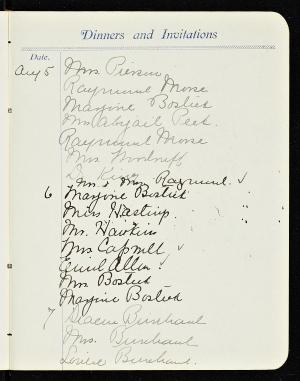 Dinners and Invitations
Date.
Aug 5 Mrs Pierson
Raymond Morse
Marjorie Bostick
Mrs Abigail Peek
Raymond Morse
Mrs Woodruff
Dr King
Mr. & Mrs. Raymond. ✓
6 Marjorie Bostick
Miss Hastings
Mr. Hawkins
Mrs Capwell ✓
Allen!
Mrs Bostick
Marjorie Bostick
7 Burnhaut
Mrs. Burnhaut
Louise Burnhaut.